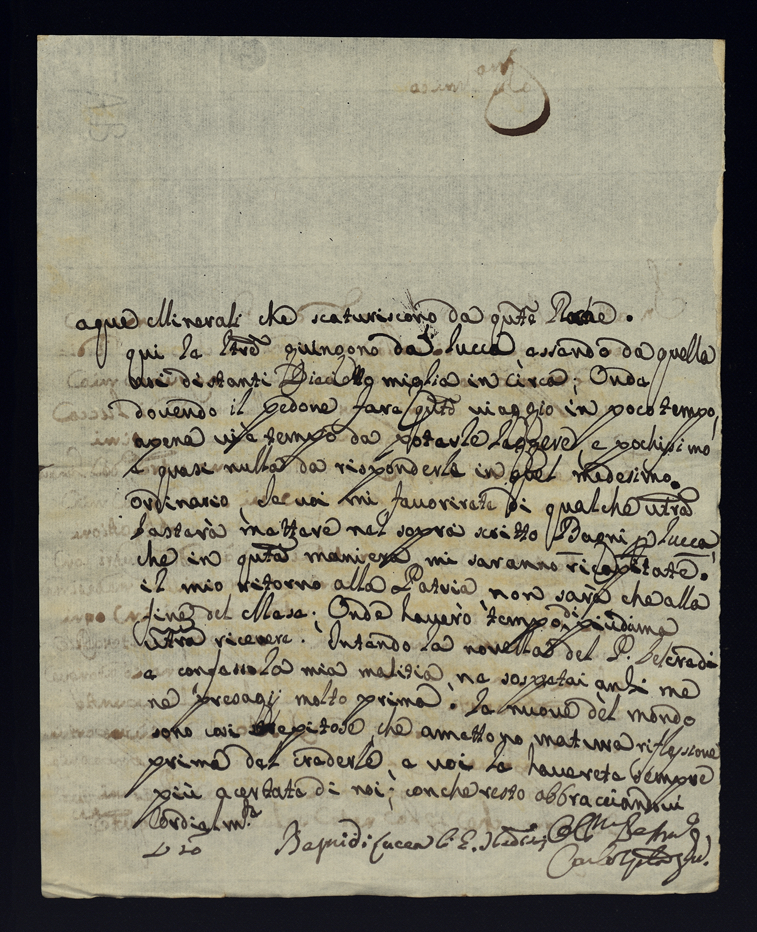 aque Minerali che scaturiscono da quẽ
qui le lrẽ giungono da Lucca essendo da quella
così distanti Dieciotto miglia in circa; Onde
dovendo il pedone fare q̃to viaggio in poco tempo,
apena vi è tempo da poterle leggere, e pochissimo
e quasi nulla da risponderle in quel medesimo
ordinario, Se voi mi favorirete di qualche vr̃a
basterà mettere nel sopra scritto Bagni p Lucca
che in q̃ta maniera mi saranno ricapitate.
il mio ritorno alla Patria non sarà che alla
fine del Mese; Onde haverò tempo di
vr̃a ricevere. Intendo la novella del P.
e confesso la mia malitia, ne sospettai anzi me
ne presagij molto prima. Le nuove del mondo
sono così strepitose che amettono matura riflessione
prima del crederle, e voi le haverete sempre
più acertate di noi; con che resto abbracciandovi
Cordialm.te
Bagni di Lucca li